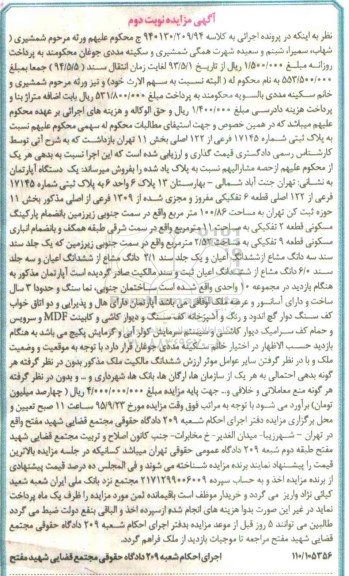 آگهی مزایده نوبت دوم
نظر به اینکه در پرونده اجرائی به کلاسه ۹۴۰۱۳۰/۲۰۹/۹۴ ج محکوم علیهم ورثه مرحوم شمشیری (
شهاب، سمیرا، شبنم و سعیده شهرت همگی شمشیری و سکینه مددی جوغان محکومند به پرداخت
روزانه مبلغ ۱/۵۰۰/۰۰۰ ریال از تاریخ ۹۳/۵/۱ لغایت زمان انتقال سند (۹۴/۵/۵) جمعا بمبلغ
۵۵۳/۵۰۰/۰۰۰ به نام محکوم له (البته نسبت به سهم الارث خود) و نیز ورثه مرحوم شمشیری و
خانم سکینه مددی بالسویه محکومند به پرداخت مبلغ ۵۲۱/۸۰۰/۰۰۰ ریال بابت اضافه متراژ بنا و
پرداخت هزینه دادرسی مبلغ ۱/۴۰۰/۰۰۰ ریال و حق الوکاله و هزینه های اجرائی بر عهده محکوم
علیهم میباشد که در همین خصوص و جهت استیفای مطالبات محکوم له سهمی محکوم علیهم نسبت
به پلاک ثبتی شماره ۱۷۱۴۵ فرعی از ۱۲۲ اصلی بخش ۱۱ تهران بازداشت که به شرح آتی توسط
کارشناس رسمی دادگستری قیمت گذاری و ارزیابی شده است که این اجرا نسبت به بدهی هر یک
از محکوم علیهم ازحصه مشارالیهم نسبت به پلاک یاد شده را بفروش میرساند: یک دستگاه آپارتمان
به نشانی: تهران جنت آباد شمالی – بهارستان ۱۳ پلاک ۶ واحد ۶ به پلاک ثبتی شماره ۱۷۱۴۵
فرعی از ۱۲۲ اصلی قطعه ۶ تفکیکی مفروز و مجزی شده از ۱۳۰۹ فرعی از اصلی مذکور بخش ۱۱
حوزه ثبت کن تهران به مساحت ۱۰۰/۸۶ متر مربع واقع در سمت جنوبی زیرزمین بانضمام پارکینگ
مسکونی قطعه ۲ تفکیکی به مساحت ۱۱ مترمربع واقع در سمت شرقی طبقه همکف و بانضمام انباری
مسکونی قطعه ۶ تفکیکی به مساحت ۲/۵۳ مترمربع واقع در سمت جنوبی زیرزمین که یک جلد سند
سند سه دانگ مشاع ازششدانگ اعیان و یک جلد سند ۲/۱ دانگ مشاع از ششدانگ اعیان و سه جلد
سند ۰/۶ دانگ مشاع از ششدانگ اعیان ثبت و سند مالکیت صادر گردیده است آپارتمان مذکور به
هنگام بازدید در مجموعه ۱۰ واحدی واقع شده است ساختمان جنوبی، نما سنگ و حدودا ۳ سال
ساخت و دارای آسانسور و عرصه ملک اوقافی می باشد آپارتمان دارای هال و پذیرایی و دو اتاق خواب
کف سنگ دوار گچ اندود و رنگ و آشپزخانه کف سنگ و دیوار کاشی و کابینت MDF و سرویس
و حمام کف سرامیک دیوار کاشی و سیستم سرمایش کولر آبی و گرمایش پکیج می باشد به هنگام
بازدید حسب الاظهار در اختیار خانم سکینه مددی جوغان قرار دارد با توجه به موقعیت و وضعیت
ملک و با در نظر گرفتن سایر عوامل موثر ارزش ششدانگ مالکیت ملک مذکور بدون در نظر گرفته هر
گونه بدهی احتمالی به هر یک از سازمان ها، ارگان ها، بانک ها، شهرداری و ... و بدون در نظر گرفته
هر گونه منع معاملاتی و خلافی و... جهت پایه مزایده مبلغ ۴/۰۰۰/۰۰۰/۰۰۰ ریال (چهارصد میلیون
تومان) برآورد می شود با توجه به مراتب فوق وقت مزایده مورخ ۹۵/۹/۲۳ ساعت ۱۱ صبح تعیین و
محل برگزاری مزایده دفتر اجرای احکام شعبه ۲۰۹ دادگاه حقوقی مجتمع قضایی شهید مفتح واقع
در تهران – شهرزیبا- میدان الغدیر- خ مخابرات- جنب کانون اصلاح و تربیت مجتمع قضایی شهید
مفتح طبقه دوم شعبه ۲۰۹ دادگاه عمومی حقوقی تهران میباشد کسانیکه در جلسه مزایده بالاترین
قیمت را پیشنهاد نمایند برنده مزایده شناخته می شوند و فی المجلس ده درصد قیمت پیشنهادی
از برنده مزایده اخذ و به حساب سپرده ۲۱۷۱۲۹۹۰۰۶۰۰۹ مجتمع نزد بانک ملی ایران شعبه شعید
کیائی نژاد واریز می گردد و خریدار موظف است باقیمانده ثمن مورد مزایده را ظرف یک ماه پرداخت
نماید در غیر این صورت بدوا هزینه های انجام شده ازسپرده اخذ و الباقی بنفع دولت ضبط می گردد
طالبین می توانند ۵ روز قبل از موعد مزایده بدفتر اجرای احکام شعبه ۲۰۹ دادگاه حقوقی مجتمع
قضایی شهید مفتح مراجعه تا موجبات بازدید از ملک فراهم گردد.
۱۱۰/۱۰۵۳۵۶ اجرای احکام شعبه ۲۰۹ دادگاه حقوقی مجتمع قضایی شهید مفتح